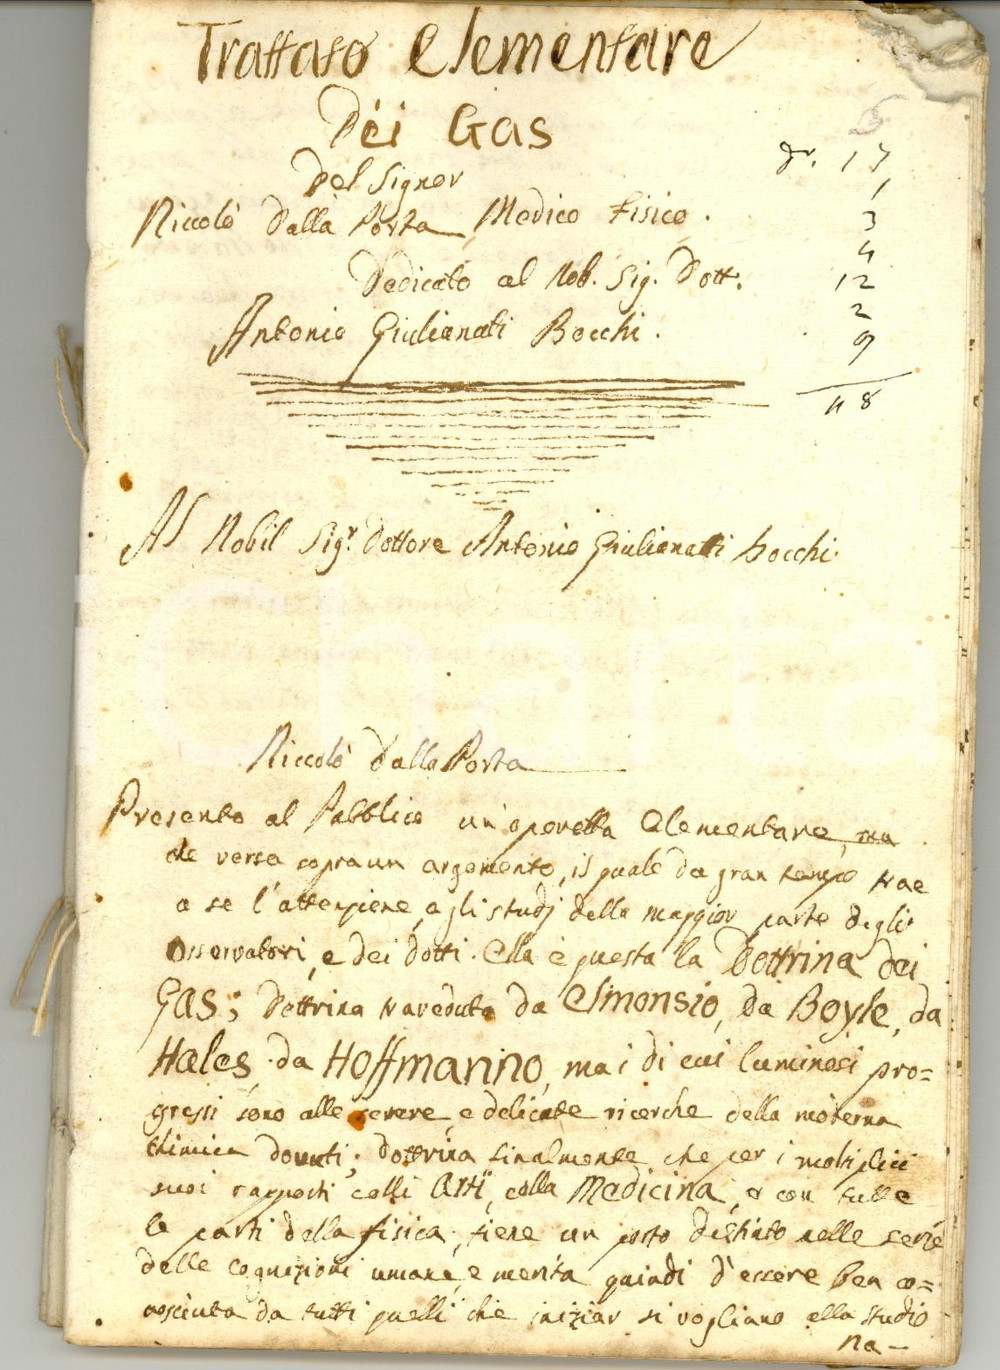 Trattato Elementare
Dei Gas
Del Signor
Niccolò Dalla Porta Medico Fisico.
Dedicato al Nob. Sig. Dott.
Antonio Giulianati Bocchi.
17
1
3
4
12
2
9
48
Al Nobil Sigr. Dottore Antonio Giulianati Bocchi.
Niccolò Dalla Porta
Presento al Pubblico un'operetta Elementare,
che versa sopra un argomento, il quale da gran tempo trae
a se l'attenzione, e gli studj della maggior parte degli
Osservatori, e dei dotti. Ella è questa la Dottrina dei
Gas; Dottrina traveduta da Elmonsio, da Boyle, da
Hales, da Hoffmanno, ma i di cui luminosi pro=
gressi sono alle severe, e delicate ricerche della moderna
Chimica dovuti; dottrina finalmente che per i moltiplici
suoi rapporti colli Arti, colla Medicina, e con tutte
le parti della fisica, tiene un posto distinto nelle serie
delle cognizioni umane, e merita quindi d'essere ben co=
nosciuta da tutti quelli che iniziar si vogliano allo studio
na-